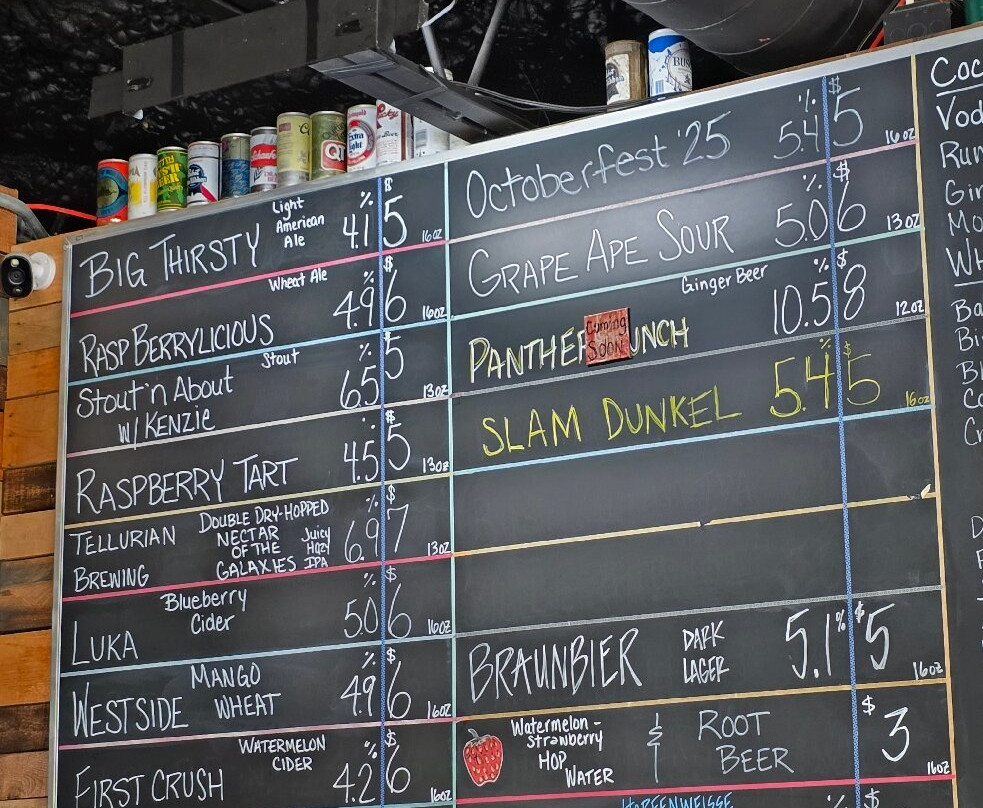 BIG THIRSTY Light American Ale 4.1% $5 16oz
RASPBERRYLICIOUS Wheat Ale 4.9% $6 16oz
Stout'n About Stout 6.5% $5 13oz
w/ KENZIE
RASPBERRY TART 4.5% $5 13oz
TELLURIAN BREWING DOUBLE DRY-HOPPED NECTAR OF THE GALAXIES Juicy Hazy IPA 6.9% $7 13oz
LUKA Blueberry Cider 5.0% $6 16oz
WESTSIDE MANGO WHEAT 4.9% $6 16oz
FIRST CRUSH WATERMELON CIDER 4.2% $6 16oz
Octoberfest '25 5.4% $5 16oz
GRAPE APE SOUR 5.0% $6 13oz
Ginger Beer 10.5% $8 12oz
Coming
Soon
SLAM DUNKEL 5.4% $5 16oz
BRAUNBIER DARK LAGER 5.1% $5 16oz
Watermelon-strawberry HOP WATER & ROOT BEER $3 16oz
HOPFENWEISSE % $